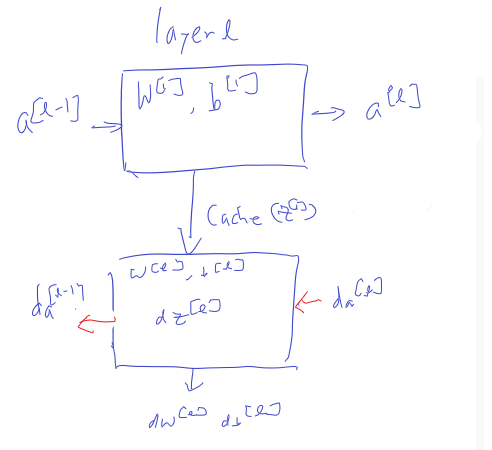 layer l
a^[l-1] → W^[l], b^[l] → a^[l]
Cache (z^[l])
W^[l], b^[l]
da^[l-1] ← dz^[l] ← da^[l]
dW^[l] db^[l]